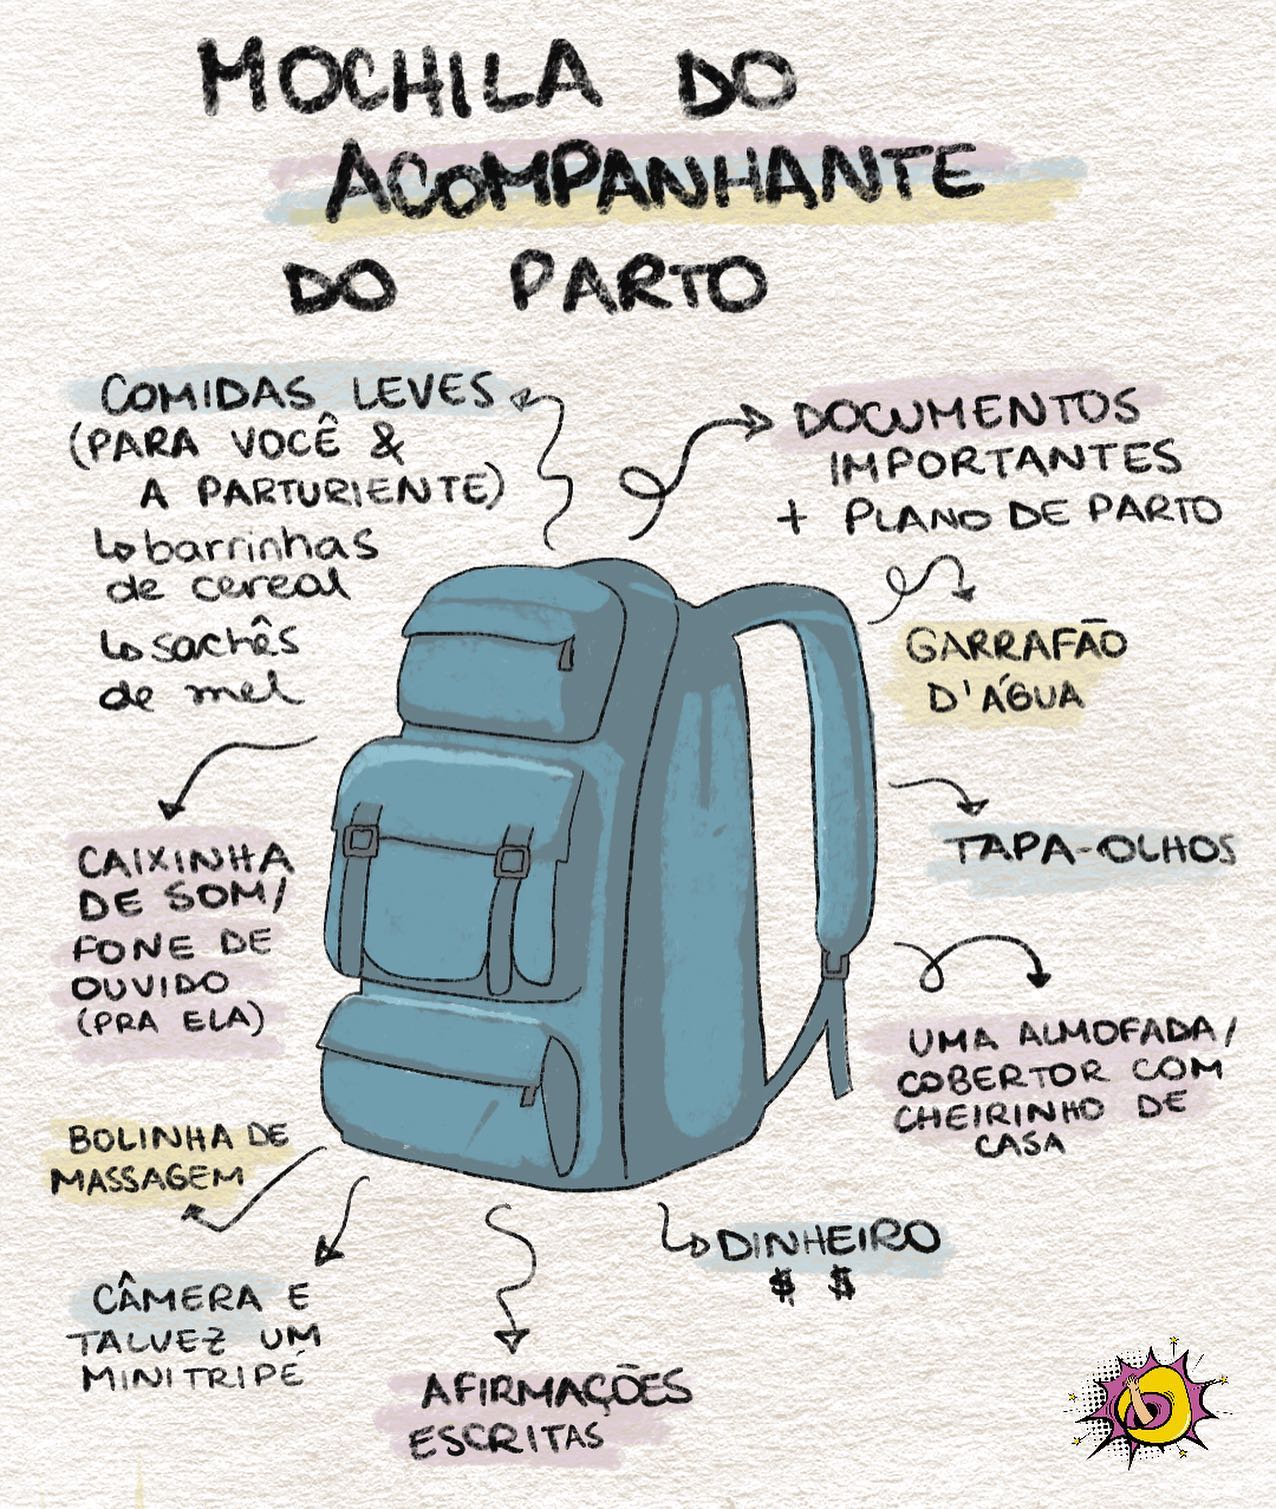 MOCHILA DO
ACOMPANHANTE
DO PARTO
COMIDAS LEVES
(PARA VOCÊ &
A PARTURIENTE)
↳ barrinhas
de cereal
↳ sachês
de mel
DOCUMENTOS
IMPORTANTES
+ PLANO DE PARTO
GARRAFÃO
D'ÁGUA
TAPA-OLHOS
UMA ALMOFADA/
COBERTOR COM
CHEIRINHO DE
CASA
CAIXINHA
DE SOM/
FONE DE
OUVIDO
(PRA ELA)
BOLINHA DE
MASSAGEM
CÂMERA E
TALVEZ UM
MINITRIPÉ
AFIRMAÇÕES
ESCRITAS
DINHEIRO
$ $